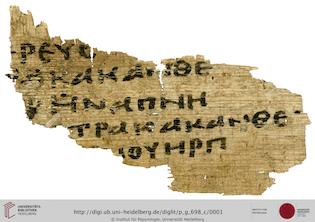 ΡΕΥϹ
ΑΚΑΚΑΝΘΕ
ΗΝΑΠΗΗ
ΤΡΑΚΑΚΑΝΘΕ
ΟΥΗΡΠ
UNIVERSITÄTS-
BIBLIOTHEK
HEIDELBERG
http://digi.ub.uni-heidelberg.de/diglit/p_g_698_c/0001
© Institut für Papyrologie, Universität Heidelberg